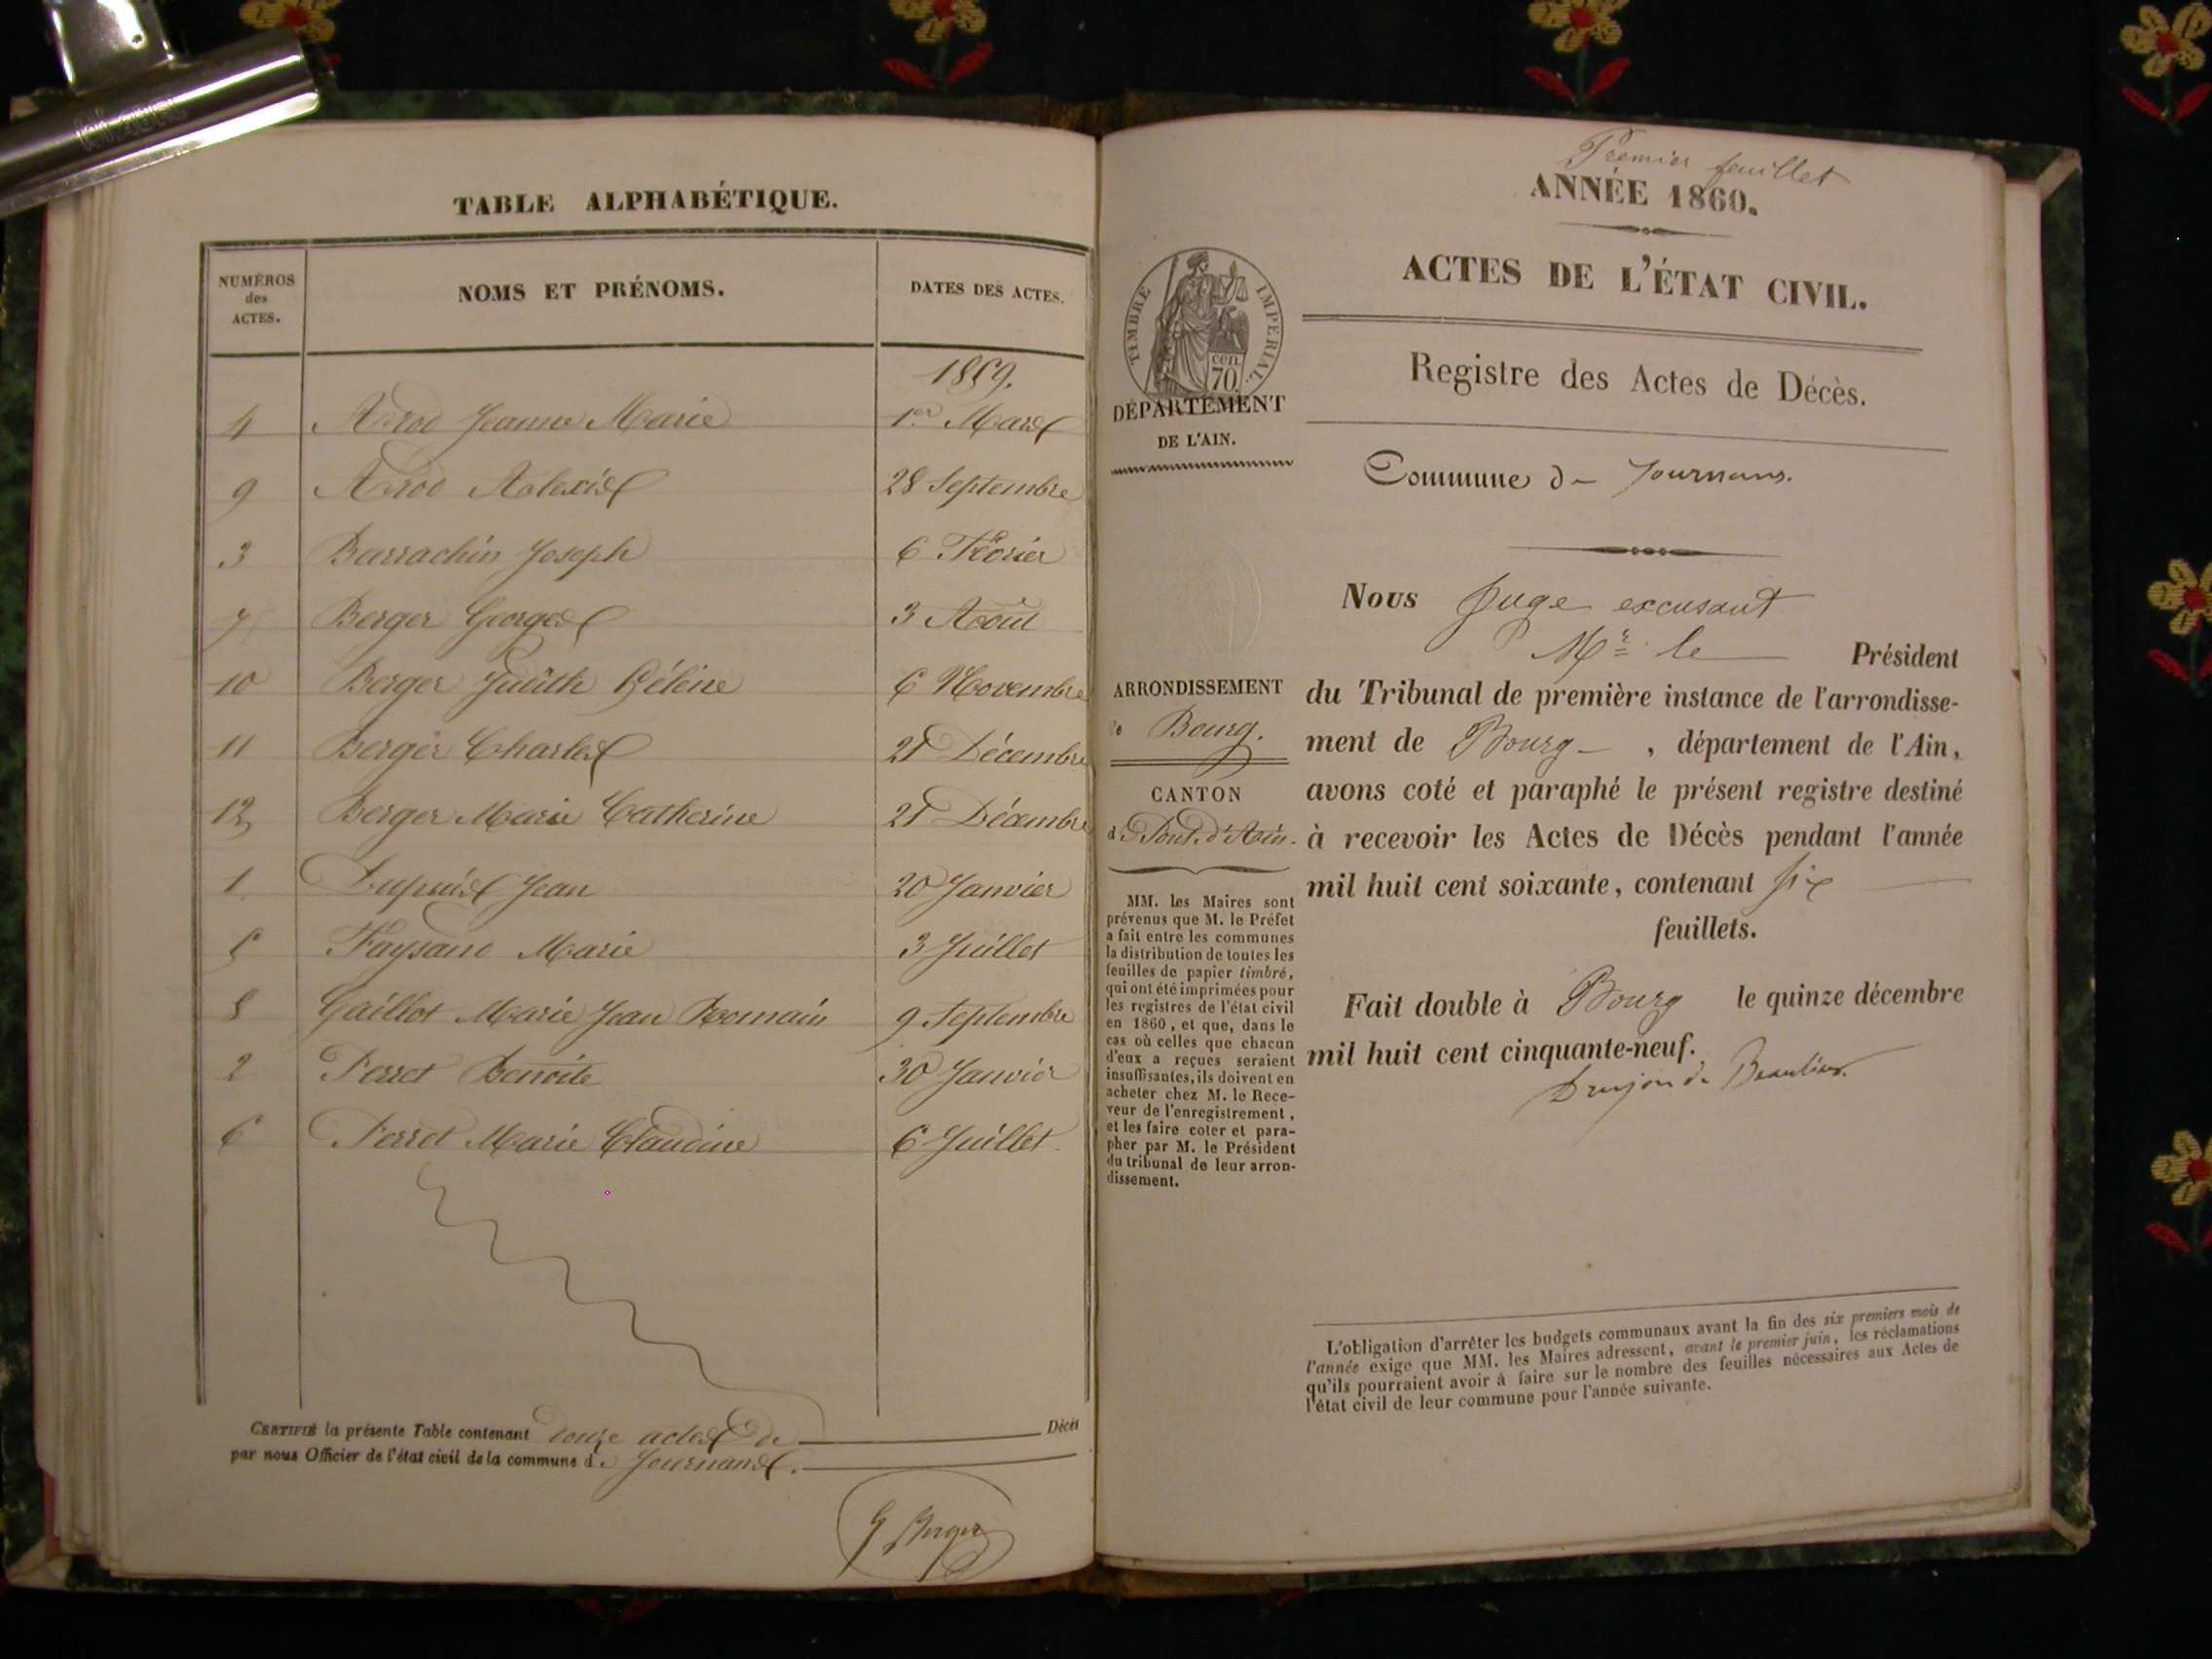 TABLE ALPHABÉTIQUE.
NUMÉROS
des
ACTES.
NOMS ET PRÉNOMS.
DATES DES ACTES.
1859.
4 Arod Jeanne Marie 1er Mars
9 Arod Alexis 28 Septembre
3 Barrachin Joseph 6 Février
7 Berger Georges 3 Août
10 Berger Judith Hélène 6 Novembre
11 Berger Charles 21 Décembre
12 Berger Marie Catherine 21 Décembre
1 Dupuis Jean 20 Janvier
5 Faysand Marie 3 Juillet
8 Gaillot Marie Jean Romain 9 Septembre
2 Perret Benoite 30 Janvier
6 Perret Marie Claudine 6 Juillet
CERTIFIÉ la présente Table contenant douze actes de Décès
par nous Officier de l'état civil de la commune de Journans.
G Berger
Premier feuillet
ANNÉE 1860.
ACTES DE L'ÉTAT CIVIL.
Registre des Actes de Décès.
Commune de Journans.
TIMBRE IMPERIAL
cen.
70
DÉPARTEMENT
DE L'AIN.
ARRONDISSEMENT
de Bourg.
CANTON
de Pont-d'Ain.
MM. les Maires sont
prévenus que M. le Préfet
a fait entre les communes
la distribution de toutes les
feuilles de papier timbré,
qui ont été imprimées pour
les registres de l'état civil
en 1860, et que, dans le
cas où celles que chacun
d'eux a reçues seraient
insuffisantes, ils doivent en
acheter chez M. le Rece-
veur de l'enregistrement,
et les faire coter et para-
pher par M. le Président
du tribunal de leur arron-
dissement.
Nous Juge excusant
Mr le Président
du Tribunal de première instance de l'arrondisse-
ment de Bourg , département de l'Ain,
avons coté et paraphé le présent registre destiné
à recevoir les Actes de Décès pendant l'année
mil huit cent soixante, contenant six
feuillets.
Fait double à Bourg le quinze décembre
mil huit cent cinquante-neuf.
Drujon de Beaulieu
L'obligation d'arrêter les budgets communaux avant la fin des six premiers mois de
l'année exige que MM. les Maires adressent, avant le premier juin, les réclamations
qu'ils pourraient avoir à faire sur le nombre des feuilles nécessaires aux Actes de
l'état civil de leur commune pour l'année suivante.